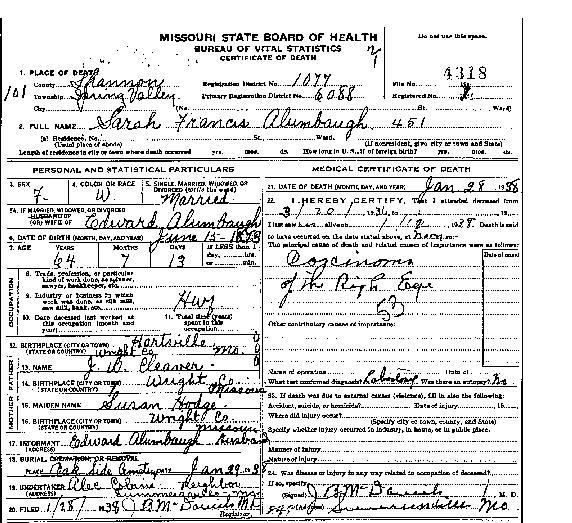 MISSOURI STATE BOARD OF HEALTH
BUREAU OF VITAL STATISTICS
CERTIFICATE OF DEATH
Do not use this space.
1. PLACE OF DEATH
County Shannon
Registration District No. 1077
File No. 4318
101 Township Spring Valley
Primary Registration District No. 6088
Registered No.
City (No. St. Ward)
2. FULL NAME Sarah Francis Alumbaugh 451
(a) Residence, No. St., Ward.
(Usual place of abode) (If nonresident, give city or town and State)
Length of residence in city or town where death occurred yrs. mos. ds. How long in U. S., if of foreign birth? yrs. mos. ds.
PERSONAL AND STATISTICAL PARTICULARS
3. SEX F
4. COLOR OR RACE W.
5. SINGLE, MARRIED, WIDOWED OR DIVORCED (write the word) Married
5A. IF MARRIED, WIDOWED, OR DIVORCED
HUSBAND OF
(OR) WIFE OF Edward Alumbaugh
6. DATE OF BIRTH (MONTH, DAY, AND YEAR) June 15-1873
7. AGE YEARS MONTHS DAYS If LESS than 1 day, hrs. or min.
64 7 13
OCCUPATION
8. Trade, profession, or particular kind of work done, as spinner, sawyer, bookkeeper, etc.
9. Industry or business in which work was done, as silk mill, saw mill, bank, etc. Hwf
10. Date deceased last worked at this occupation (month and year)
11. Total time (years) spent in this occupation
12. BIRTHPLACE (CITY OR TOWN) Hartville
(STATE OR COUNTRY) Wright Co. Mo.
FATHER
13. NAME J. W. Cleaver
14. BIRTHPLACE (CITY OR TOWN) Wright Co
(STATE OR COUNTRY) Missouri
MOTHER
15. MAIDEN NAME Susan Hodge
16. BIRTHPLACE (CITY OR TOWN) Wright Co
(STATE OR COUNTRY) Missouri
17. INFORMANT Edward Alumbaugh Husband
(ADDRESS)
18. BURIAL, CREMATION, OR REMOVAL
PLACE Oak Side Cemty DATE Jan 29-38
19. UNDERTAKER Alec Neighbor
(ADDRESS) Summersville Mo
20. FILED 1/28/ 1938 J B McDaniels M.D.
Registrar.
MEDICAL CERTIFICATE OF DEATH
21. DATE OF DEATH (MONTH, DAY, AND YEAR) Jan 28 1938
22. I HEREBY CERTIFY, That I attended deceased from
I last saw h alive on Death is said
to have occurred on the date stated above, at
The principal cause of death and related causes of importance were as follows:
Date of onset
Carcinoma
of the Right Eye
53
Other contributory causes of importance:
Name of operation Date of
What test confirmed diagnosis? Was there an autopsy? No
23. If death was due to external causes (violence), fill in also the following:
Accident, suicide, or homicide? Date of injury 19
Where did injury occur?
(Specify city or town, county, and State)
Specify whether injury occurred in industry, in home, or in public place.
Manner of injury
Nature of injury
24. Was disease or injury in any way related to occupation of deceased?
If so, specify
(Signed) J B McDaniels M. D.
Summersville Mo.